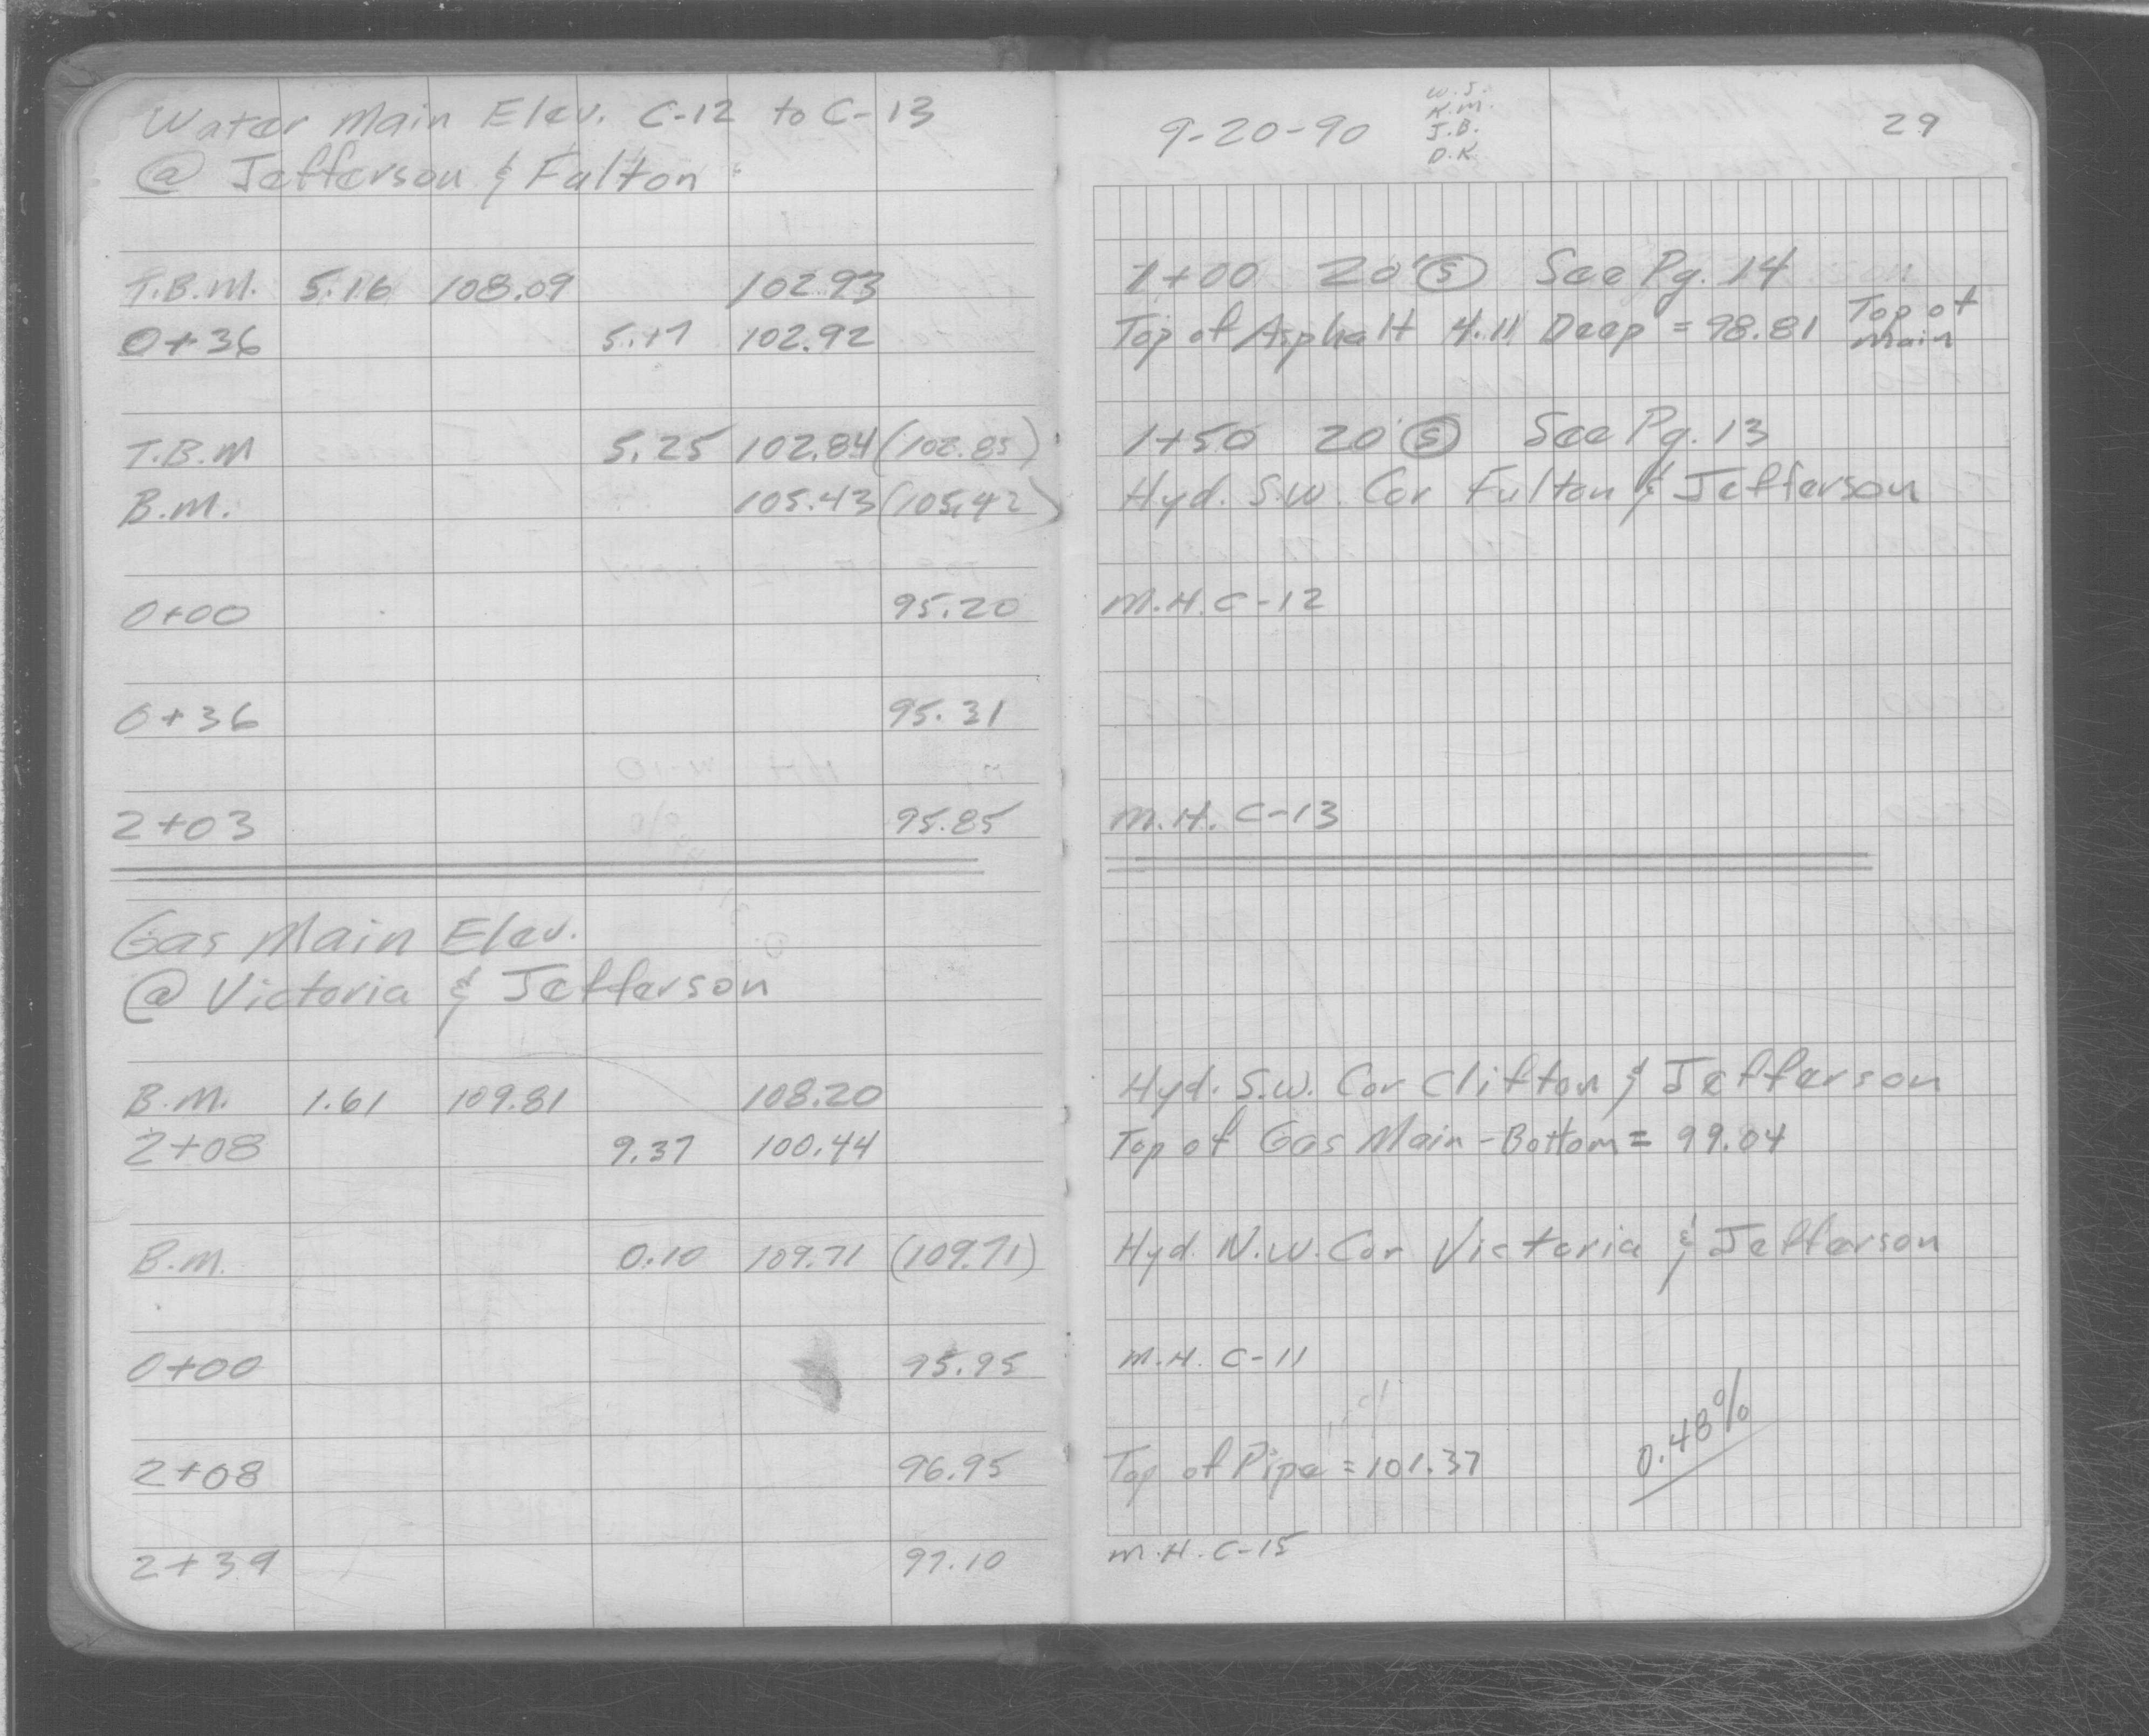 Water Main Elev. C-12 to C-13
@ Jefferson & Fulton
T.B.M. 5.16 108.09 102.93
0+36 5.17 102.92
T.B.M 5.25 102.84 (102.85)
B.M. 105.43 (105.42)
0+00 95.20
0+36 95.31
2+03 95.85
Gas Main Elev.
@ Victoria & Jefferson
B.M. 1.61 109.81 108.20
2+08 9.37 100.44
B.M. 0.10 109.71 (109.71)
0+00 95.95
2+08 96.95
2+39 97.10
9-20-90
W.J.
K.M.
J.B.
D.K.
29
1+00 20' S See Pg. 14
Top of Asphalt 4.11 Deep = 98.81 Top of Main
1+50 20' S See Pg. 13
Hyd. S.W. Cor Fulton & Jefferson
M.H. C-12
M.H. C-13
Hyd. S.W. Cor Clifton & Jefferson
Top of Gas Main - Bottom = 99.04
Hyd. N.W. Cor Victoria & Jefferson
M.H. C-11
Top of Pipe = 101.37
0.48%
M.H. C-15